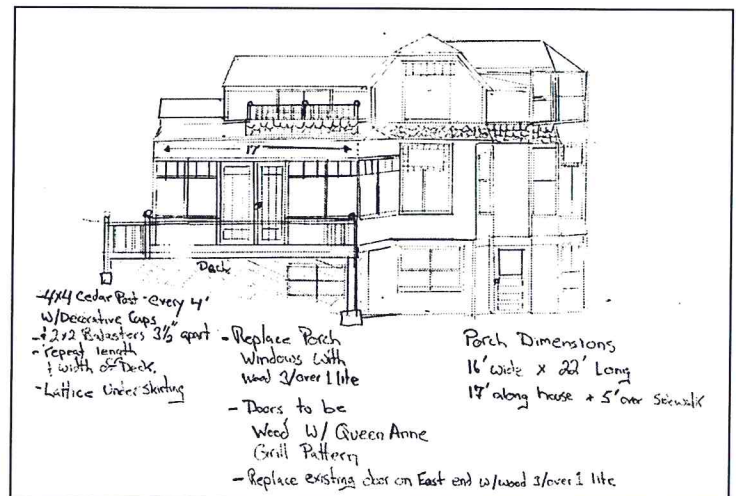 17'
Deck
-4x4 Cedar Post - every 4'
W/Decorative Caps
- 2x2 Balasters 3½" apart
- repeat length
& width of Deck.
- Lattice Under Skirting
- Replace Porch
Windows with
Wood 3/over 1 lite
- Doors to be
Wood W/ Queen Anne
Grill Pattern
- Replace existing door on East end w/wood 3/over 1 lite
Porch Dimensions
16' wide x 22' Long
17' along house + 5' over Sidewalk